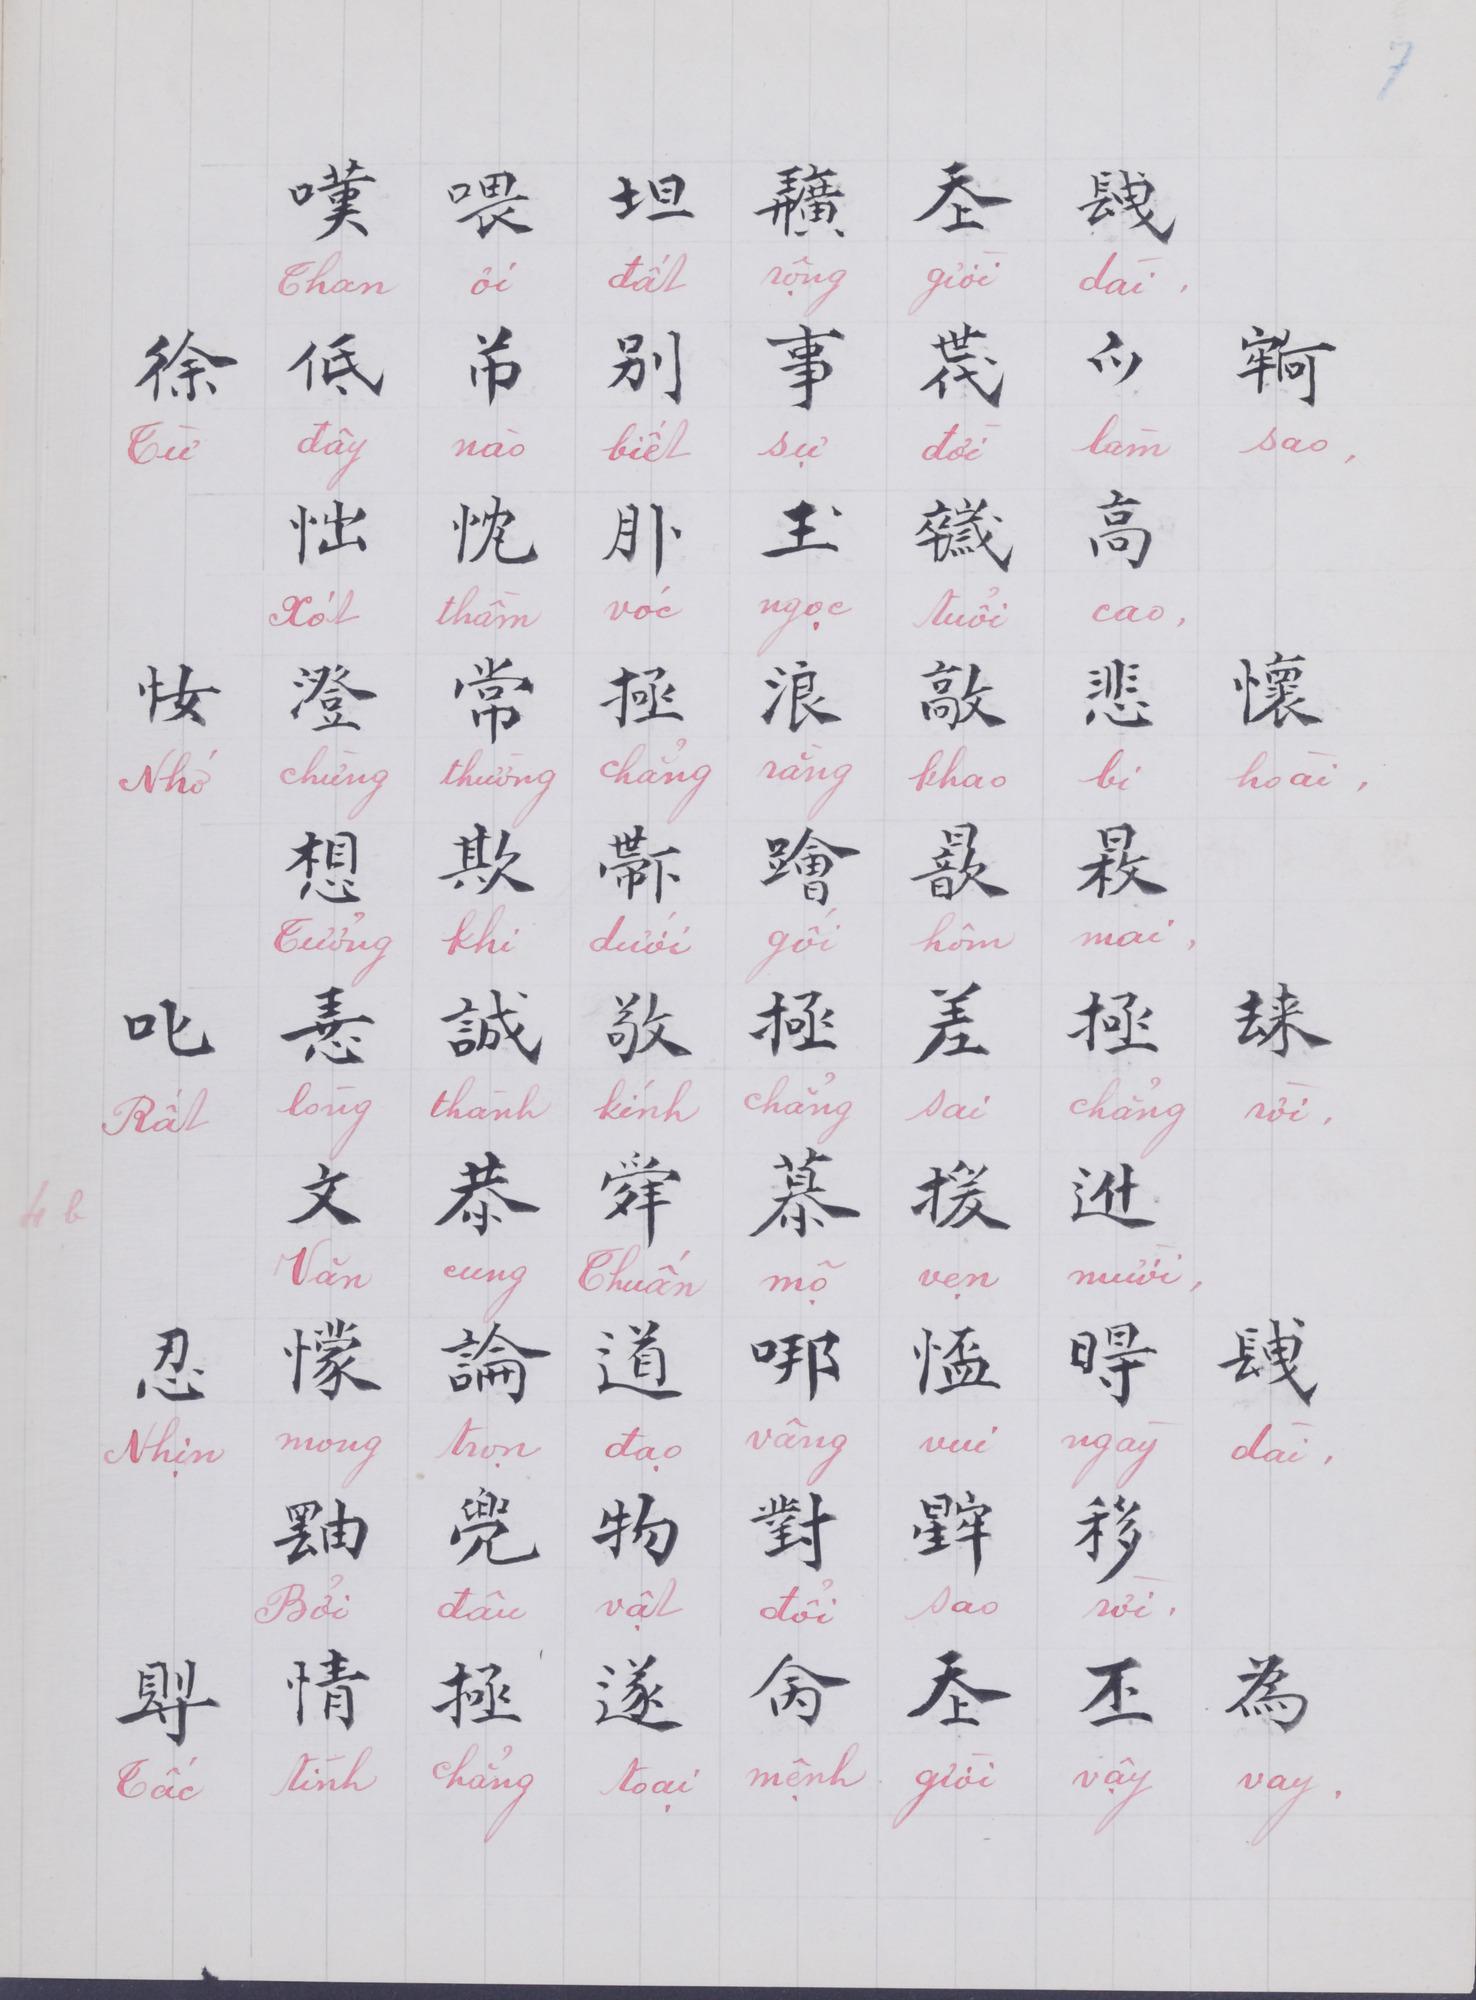 7
嘆 喂 坦 𢌌 𡗶 𨱽
Than ôi đất rộng giời dài,
徐 低 吊 别 事 𠁀 𫜵 牢
Từ đây nào biết sự đời làm sao,
怞 忱 𦙠 玉 歲 高
Xót thầm vóc ngọc tuổi cao,
𢘾 澄 常 拯 浪 敲 悲 懷
Nhớ chừng thường chẳng rằng khao bi hoài,
想 欺 𠁑 𨆝 歆 𣈕
Tưởng khi dưới gối hôm mai,
叱 𢚸 誠 敬 拯 差 拯 耒
Rất lòng thành kính chẳng sai chẳng rời,
文 恭 舜 慕 援 𨑮
Văn cung Thuấn mộ vẹn mười,
4b
忍 懞 論 道 哪 𢝙 𣈗 𨱽
Nhịn mong trọn đạo vâng vui ngày dài,
兜 物 對 移
Bởi đâu vật đổi sao rời,
情 拯 遂 命 𡗶 丕 為
Tấc tình chẳng toại mệnh giời vậy vay.